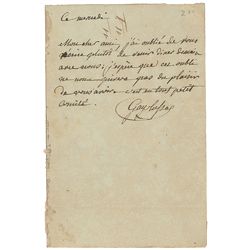 Ce mercredi
Mon cher ami, j'ai oublié de vous
plutôt de venir diner demain
avec nous; j'espère que cet oubli
ne nous privera pas du plaisir
de vous avoir. C'est en tout petit
comité.
Gay-Lussac